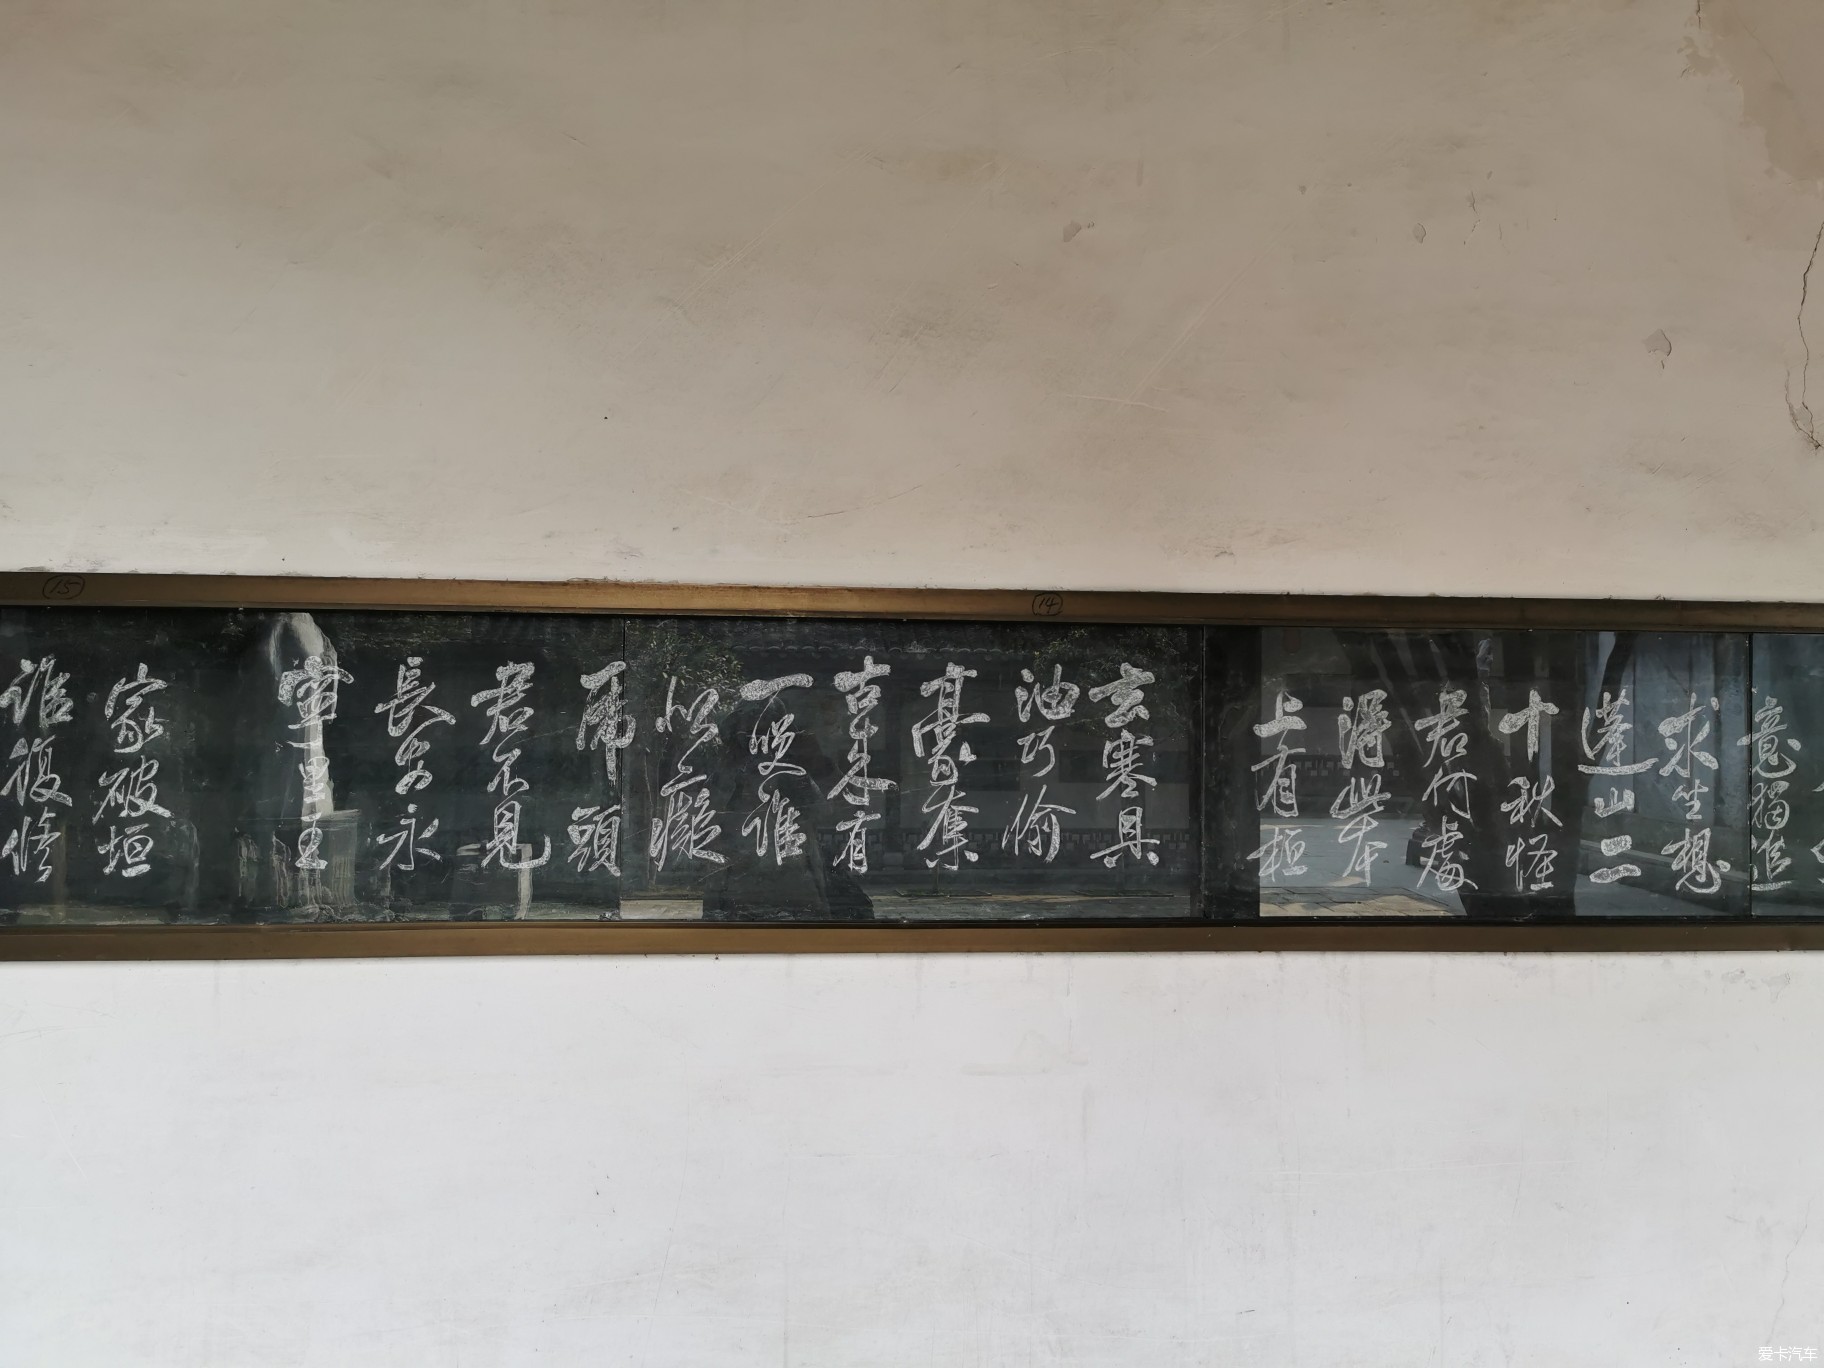 意獨追
求坐想
蓬山二
十秋怪
君何處
得此本
上有桓
玄寒具
油巧偷
豪奪
古来有
一咲誰
似癡
虎頭
君不見
長安永
寧里王
家破垣
誰復修
14
15
爱卡汽车